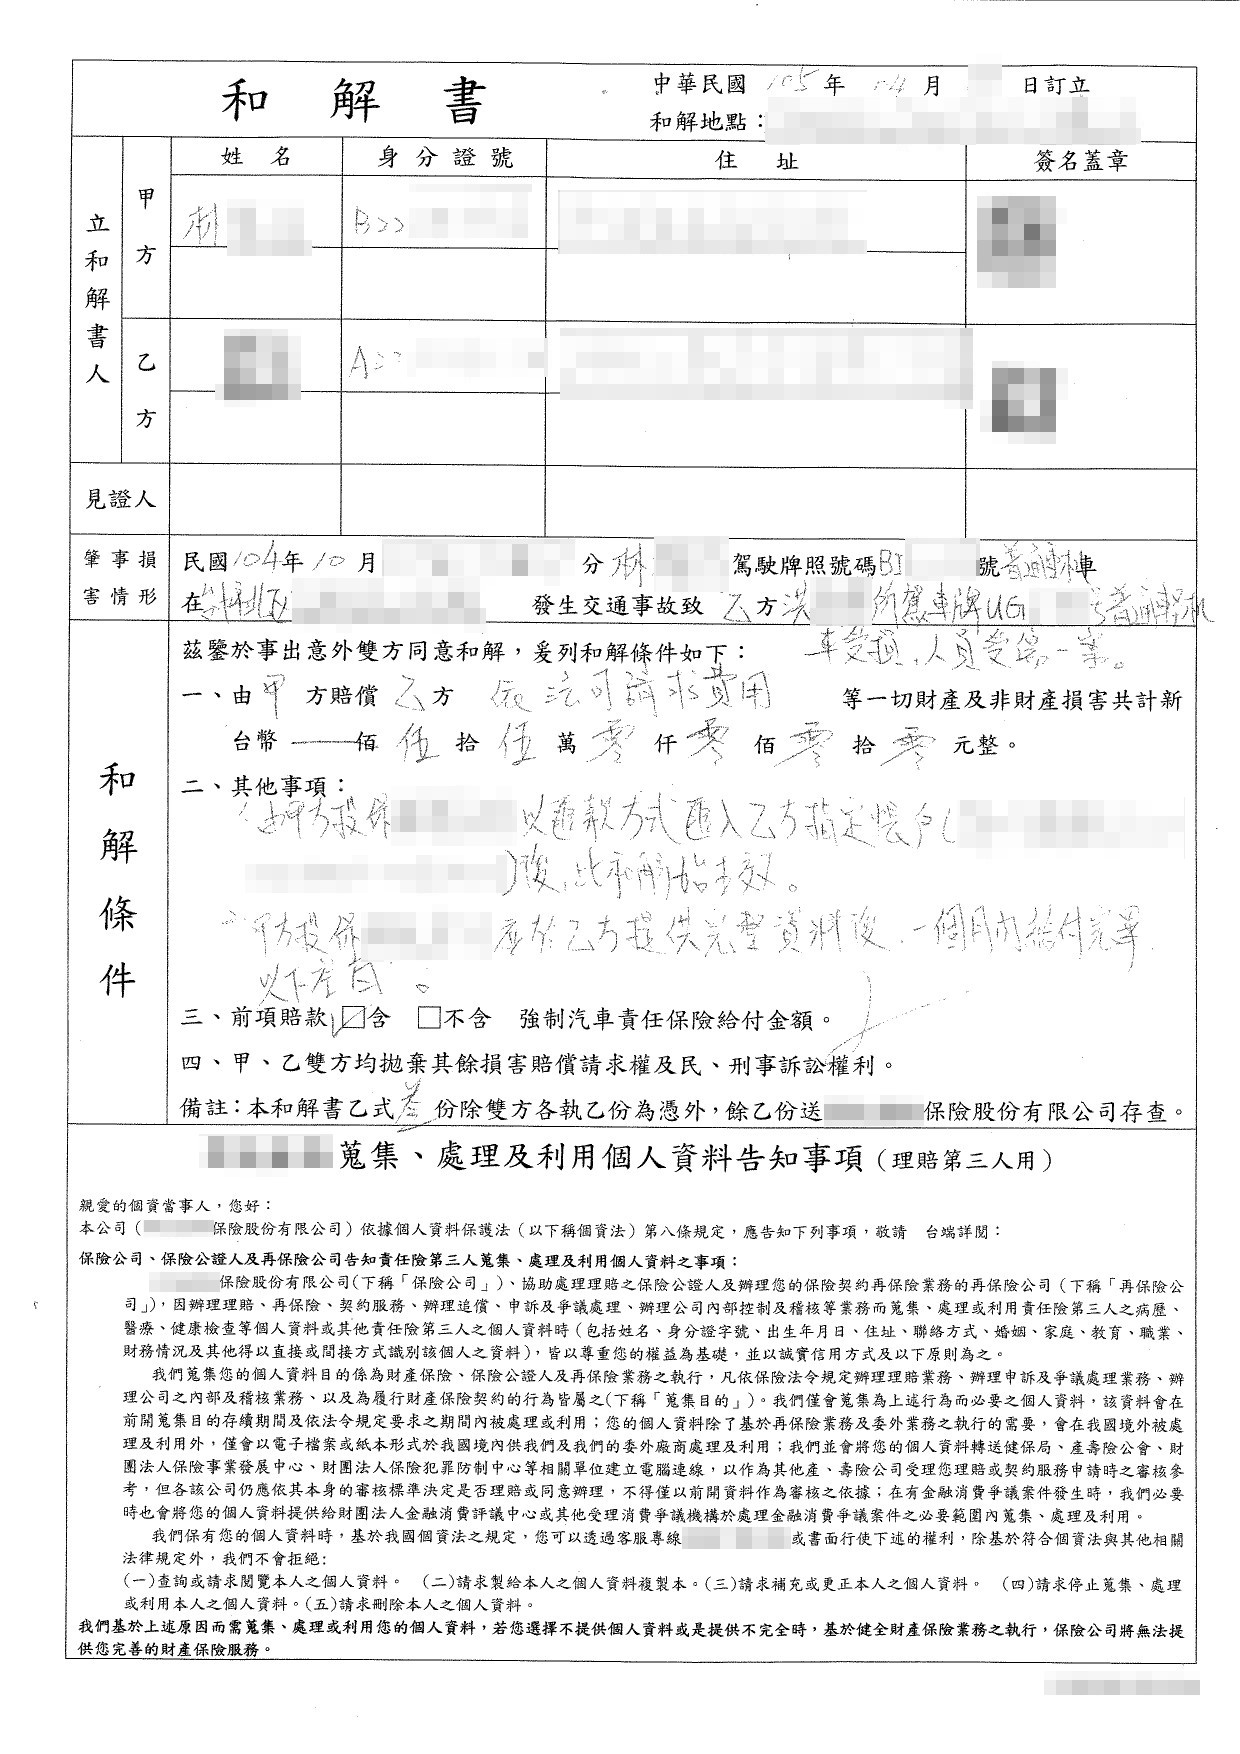 和解書
中華民國 105 年 04 月 日訂立
和解地點：
立和解書人
甲方
乙方
姓名 身分證號 住址 簽名蓋章
林 B22
A22
見證人
肇事損害情形
民國104年10月 分 林 駕駛牌照號碼BI 號普通 車
在台中市北區 發生交通事故致 乙方洪 所駕車牌UG 號普通輕機
車受損、人員受傷一案。
和解條件
茲鑒於事出意外雙方同意和解，爰列和解條件如下：
一、由 甲 方賠償 乙 方 依法可請求費用 等一切財產及非財產損害共計新
台幣 佰 伍 拾 伍 萬 零 仟 零 佰 零 拾 零 元整。
二、其他事項：
由甲方投保 以匯款方式匯入乙方指定帳戶(
)後，此和解始生效。
甲方投保 應於乙方提供完整資料後，一個月內給付完畢
以下空白。
三、前項賠款 ☑含 □不含 強制汽車責任保險給付金額。
四、甲、乙雙方均拋棄其餘損害賠償請求權及民、刑事訴訟權利。
備註：本和解書乙式 叁 份除雙方各執乙份為憑外，餘乙份送 保險股份有限公司存查。
蒐集、處理及利用個人資料告知事項（理賠第三人用）
親愛的個資當事人，您好：
本公司（ 保險股份有限公司）依據個人資料保護法（以下稱個資法）第八條規定，應告知下列事項，敬請 台端詳閱：
保險公司、保險公證人及再保險公司告知責任險第三人蒐集、處理及利用個人資料之事項：
保險股份有限公司(下稱「保險公司」)、協助處理理賠之保險公證人及辦理您的保險契約再保險業務的再保險公司（下稱「再保險公
司」)，因辦理理賠、再保險、契約服務、辦理追償、申訴及爭議處理、辦理公司內部控制及稽核等業務而蒐集、處理或利用責任險第三人之病歷、
醫療、健康檢查等個人資料或其他責任險第三人之個人資料時（包括姓名、身分證字號、出生年月日、住址、聯絡方式、婚姻、家庭、教育、職業、
財務情況及其他得以直接或間接方式識別該個人之資料），皆以尊重您的權益為基礎，並以誠實信用方式及以下原則為之。
我們蒐集您的個人資料目的係為財產保險、保險公證人及再保險業務之執行，凡依保險法令規定辦理理賠業務、辦理申訴及爭議處理業務、辦
理公司之內部及稽核業務、以及為履行財產保險契約的行為皆屬之(下稱「蒐集目的」)。我們僅會蒐集為上述行為而必要之個人資料，該資料會在
前開蒐集目的存續期間及依法令規定要求之期間內被處理或利用；您的個人資料除了基於再保險業務及委外業務之執行的需要，會在我國境外被處
理及利用外，僅會以電子檔案或紙本形式於我國境內供我們及我們的委外廠商處理及利用；我們並會將您的個人資料轉送健保局、產壽險公會、財
團法人保險事業發展中心、財團法人保險犯罪防制中心等相關單位建立電腦連線，以作為其他產、壽險公司受理您理賠或契約服務申請時之審核參
考，但各該公司仍應依其本身的審核標準決定是否理賠或同意辦理，不得僅以前開資料作為審核之依據；在有金融消費爭議案件發生時，我們必要
時也會將您的個人資料提供給財團法人金融消費評議中心或其他受理消費爭議機構於處理金融消費爭議案件之必要範圍內蒐集、處理及利用。
我們保有您的個人資料時，基於我國個資法之規定，您可以透過客服專線 或書面行使下述的權利，除基於符合個資法與其他相關
法律規定外，我們不會拒絕：
(一)查詢或請求閱覽本人之個人資料。 (二)請求製給本人之個人資料複製本。(三)請求補充或更正本人之個人資料。 (四)請求停止蒐集、處理
或利用本人之個人資料。(五)請求刪除本人之個人資料。
我們基於上述原因而需蒐集、處理或利用您的個人資料，若您選擇不提供個人資料或是提供不完全時，基於健全財產保險業務之執行，保險公司將無法提
供您完善的財產保險服務。